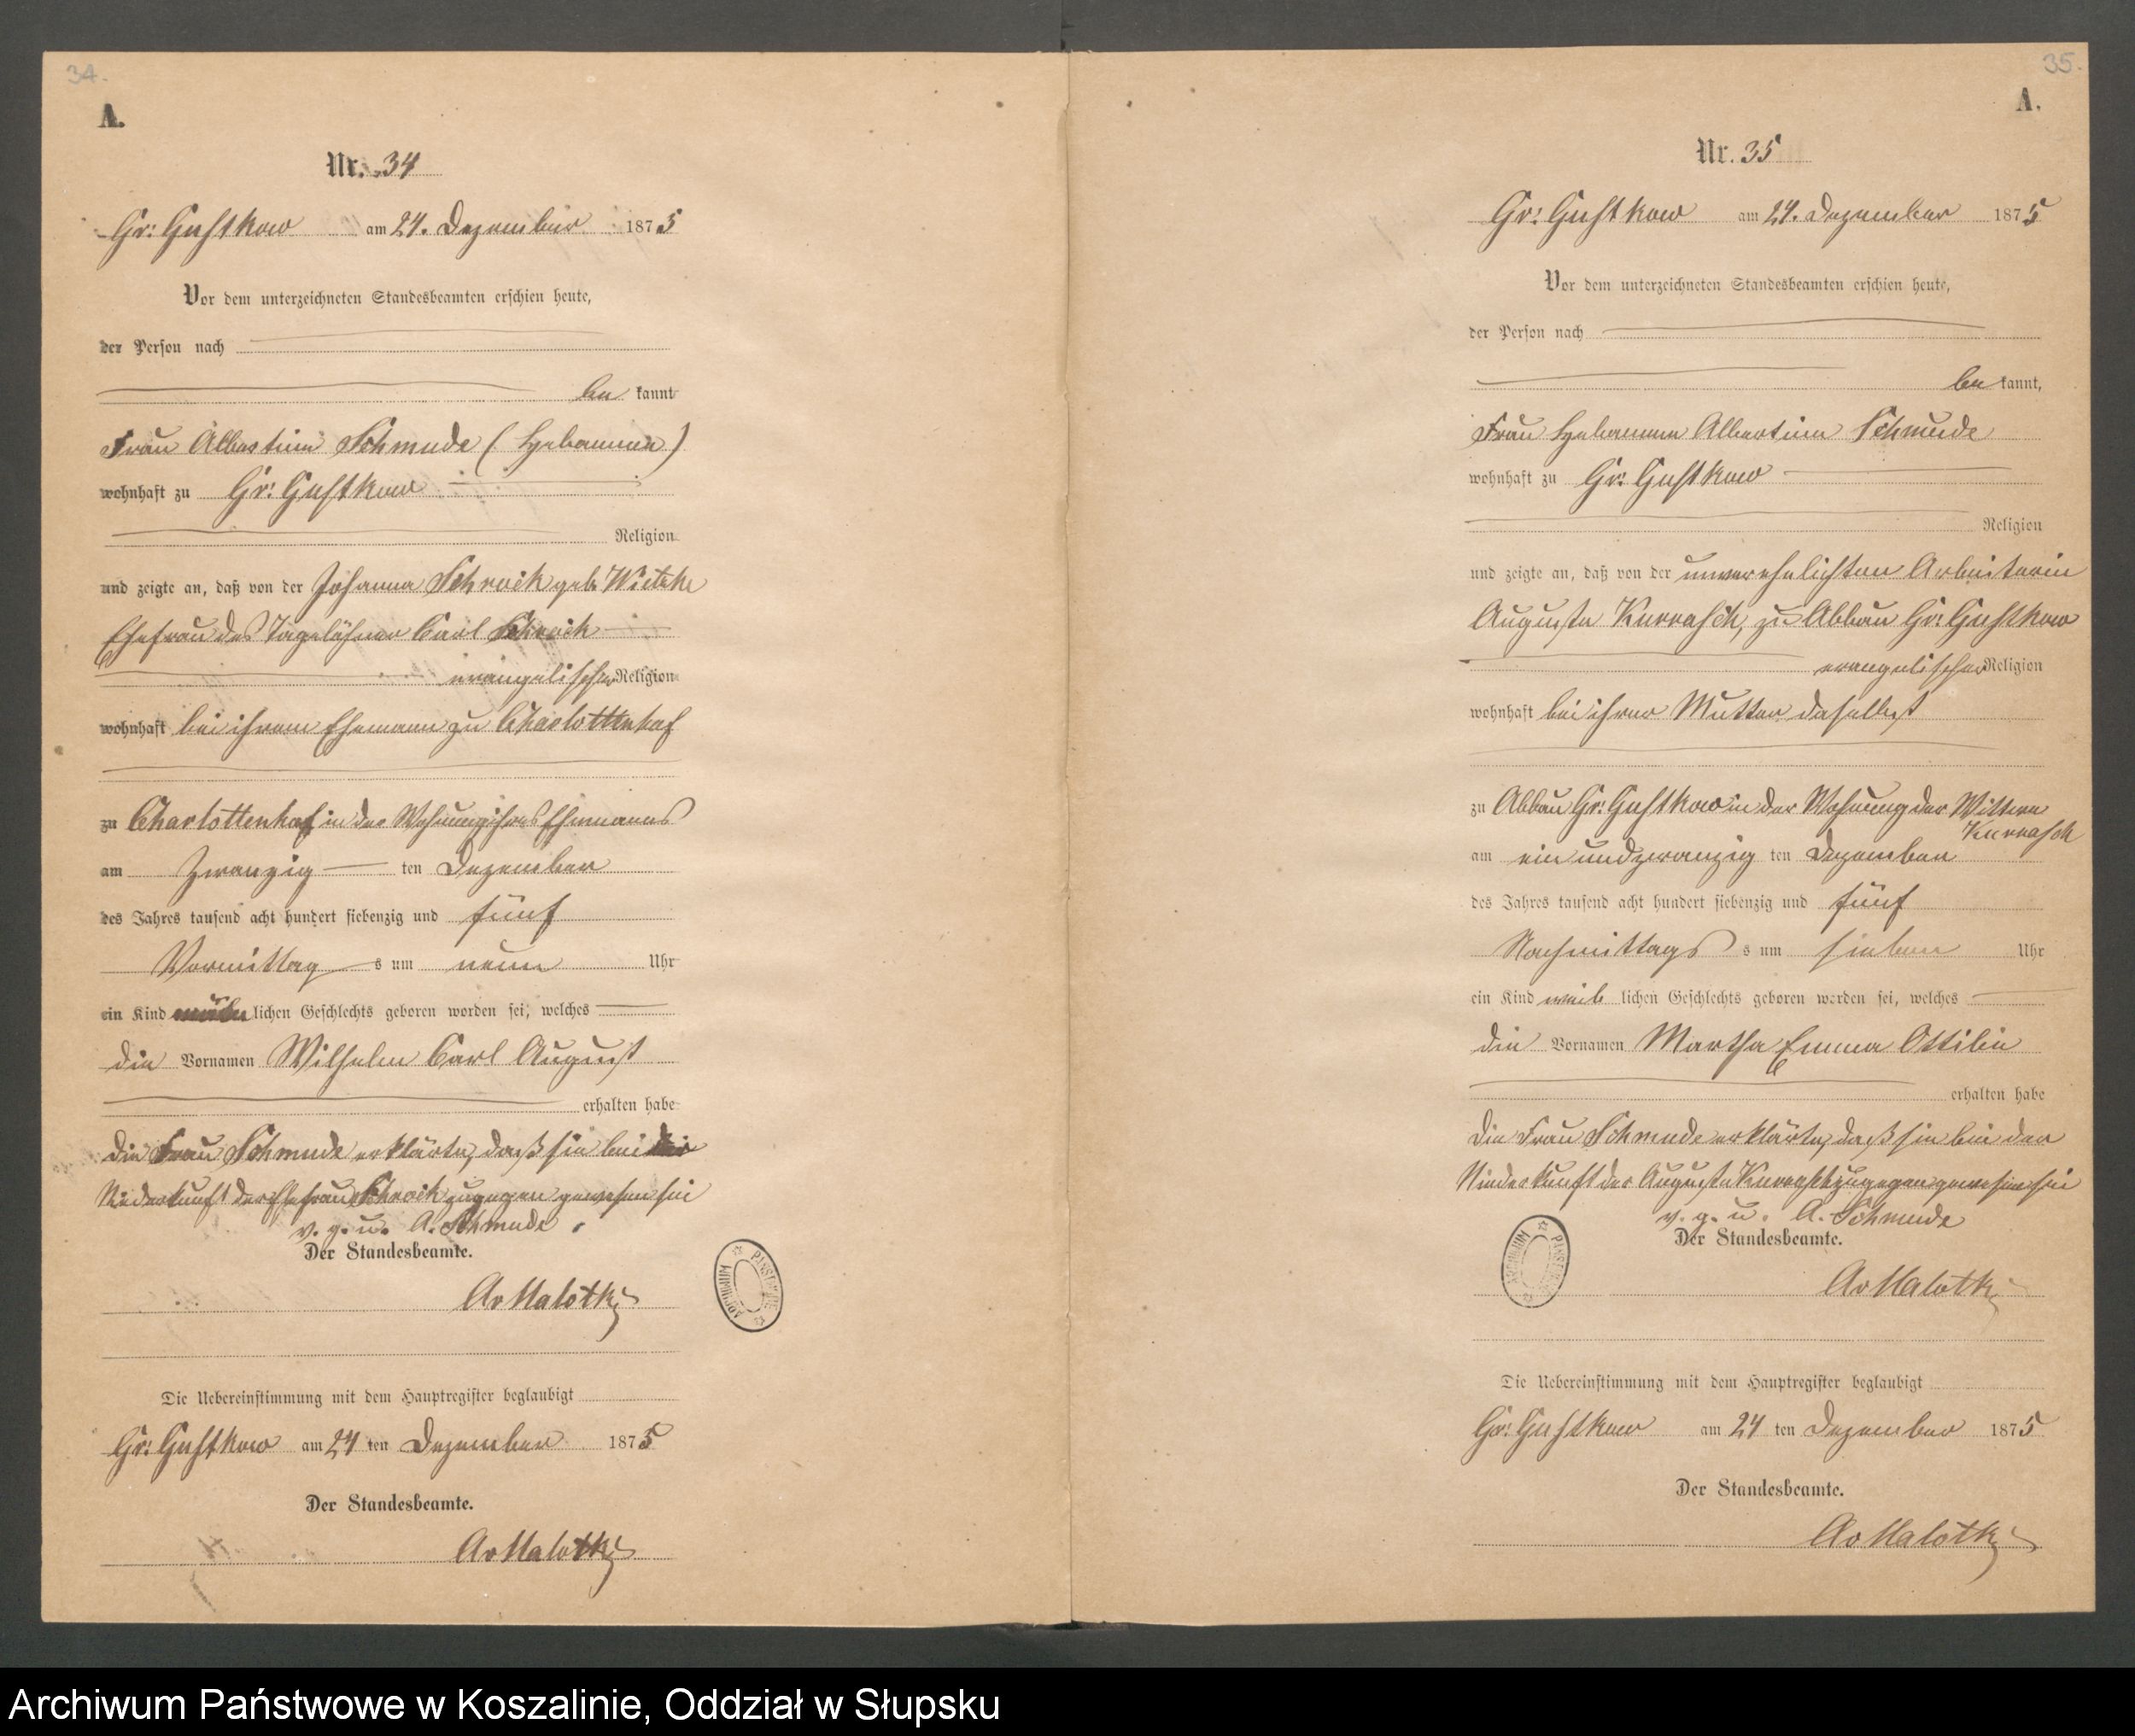 34.
A.
Nr. 34
Gr: Gustkow am 24. Dezember 1875
Vor dem unterzeichneten Standesbeamten erschien heute,
der Person nach
be kannt
Frau Albertine Schmude (Hebamme)
wohnhaft zu Gr: Gustkow
Religion
und zeigte an, daß von der Johanna Schrock geb. Wietzke
Ehefrau des Tagelöhner Carl Schrock
evangelischer Religion
wohnhaft bei ihrem Ehemann zu Charlottenhof
zu Charlottenhof in der Wohnung ihres Ehemanns
am Zwanzig ten Dezember
des Jahres tausend acht hundert siebenzig und fünf
Vormittag s um neun Uhr
ein Kind lichen Geschlechts geboren worden sei, welches
die Vornamen Wilhelm Carl August
erhalten habe
Die Frau Schmude erklärte, daß sie bei der
Niederkunft der Ehefrau Schrock zugegen gewesen sei
v. g. u. A. Schmude.
Der Standesbeamte.
AvMalotki
ARCHIWUM PAŃSTWOWE
Die Uebereinstimmung mit dem Hauptregister beglaubigt
Gr: Gustkow am 24 ten Dezember 1875
Der Standesbeamte.
AvMalotki
35.
A.
Nr. 35
Gr: Gustkow am 24. Dezember 1875
Vor dem unterzeichneten Standesbeamten erschien heute,
der Person nach
be kannt,
Frau Hebamme Albertine Schmude
wohnhaft zu Gr: Gustkow
Religion
und zeigte an, daß von der unverehelichten Arbeiterin
Auguste Kurrasch, zu Abbau Gr: Gustkow
evangelischer Religion
wohnhaft bei ihrer Mutter daselbst
zu Abbau Gr: Gustkow in der Wohnung der Wittwe
Kurrasch
am ein und zwanzig ten Dezember
des Jahres tausend acht hundert siebenzig und fünf
Nachmittags s um sieben Uhr
ein Kind weib lichen Geschlechts geboren worden sei, welches
die Vornamen Martha Emma Ottilie
erhalten habe
Die Frau Schmude erklärte, daß sie bei der
Niederkunft der Auguste Kurrasch zugegen gewesen sei
v. g. u. A. Schmude
Der Standesbeamte.
AvMalotki
ARCHIWUM PAŃSTWOWE
Die Uebereinstimmung mit dem Hauptregister beglaubigt
Gr: Gustkow am 24 ten Dezember 1875
Der Standesbeamte.
AvMalotki
Archiwum Państwowe w Koszalinie, Oddział w Słupsku